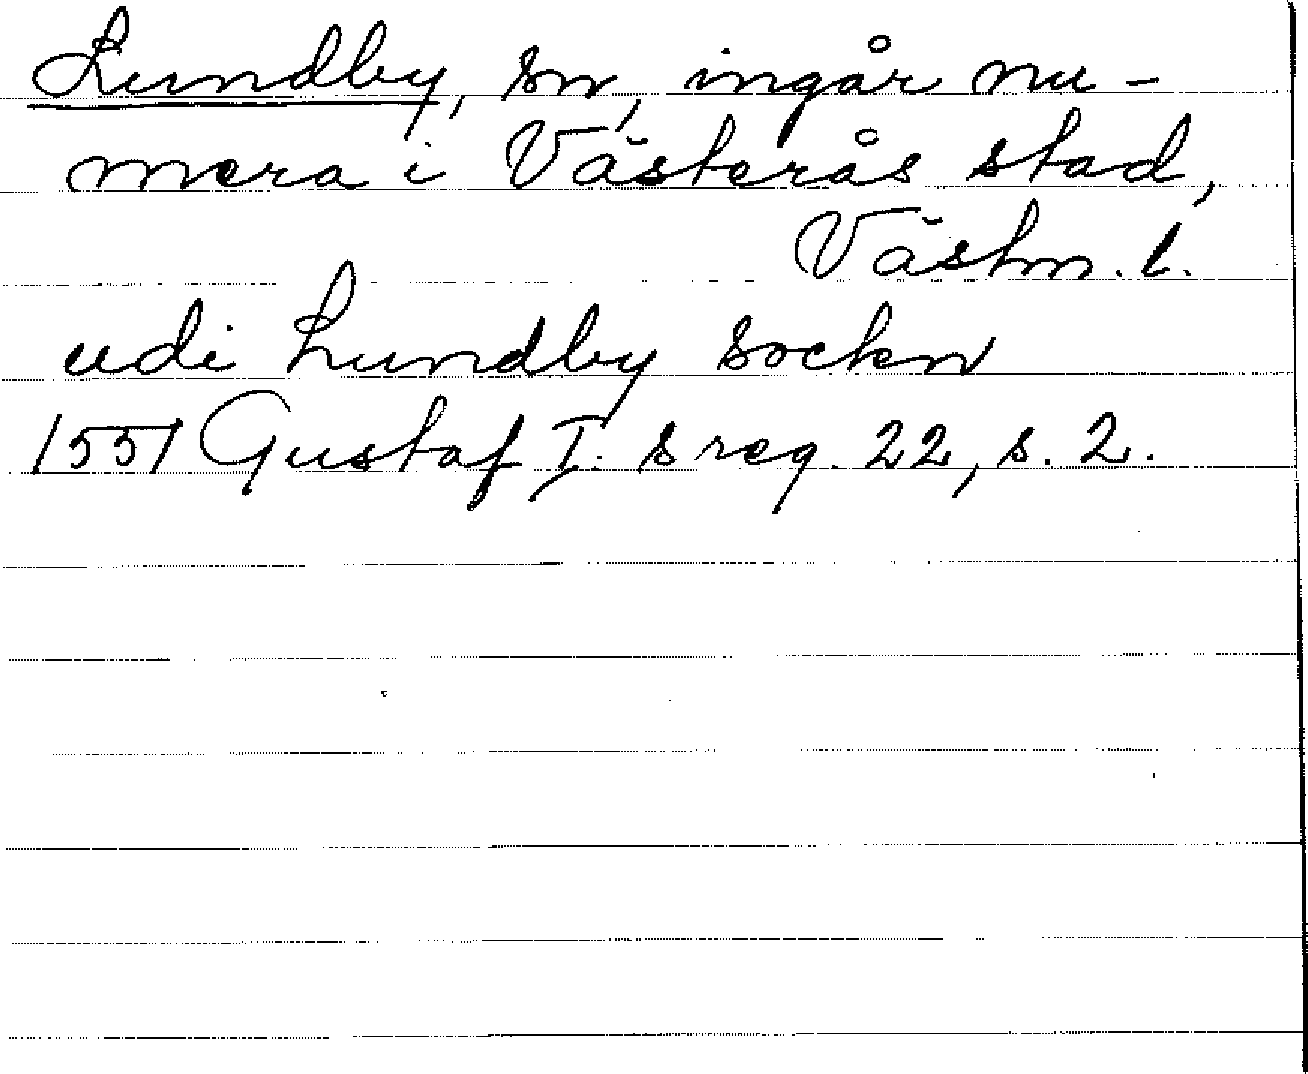 Lundby, sn, ingår nu-
mera i Västerås stad,
Västm. l.
udi Lundby sockn
1551 Gustaf I. s reg. 22, s. 2.